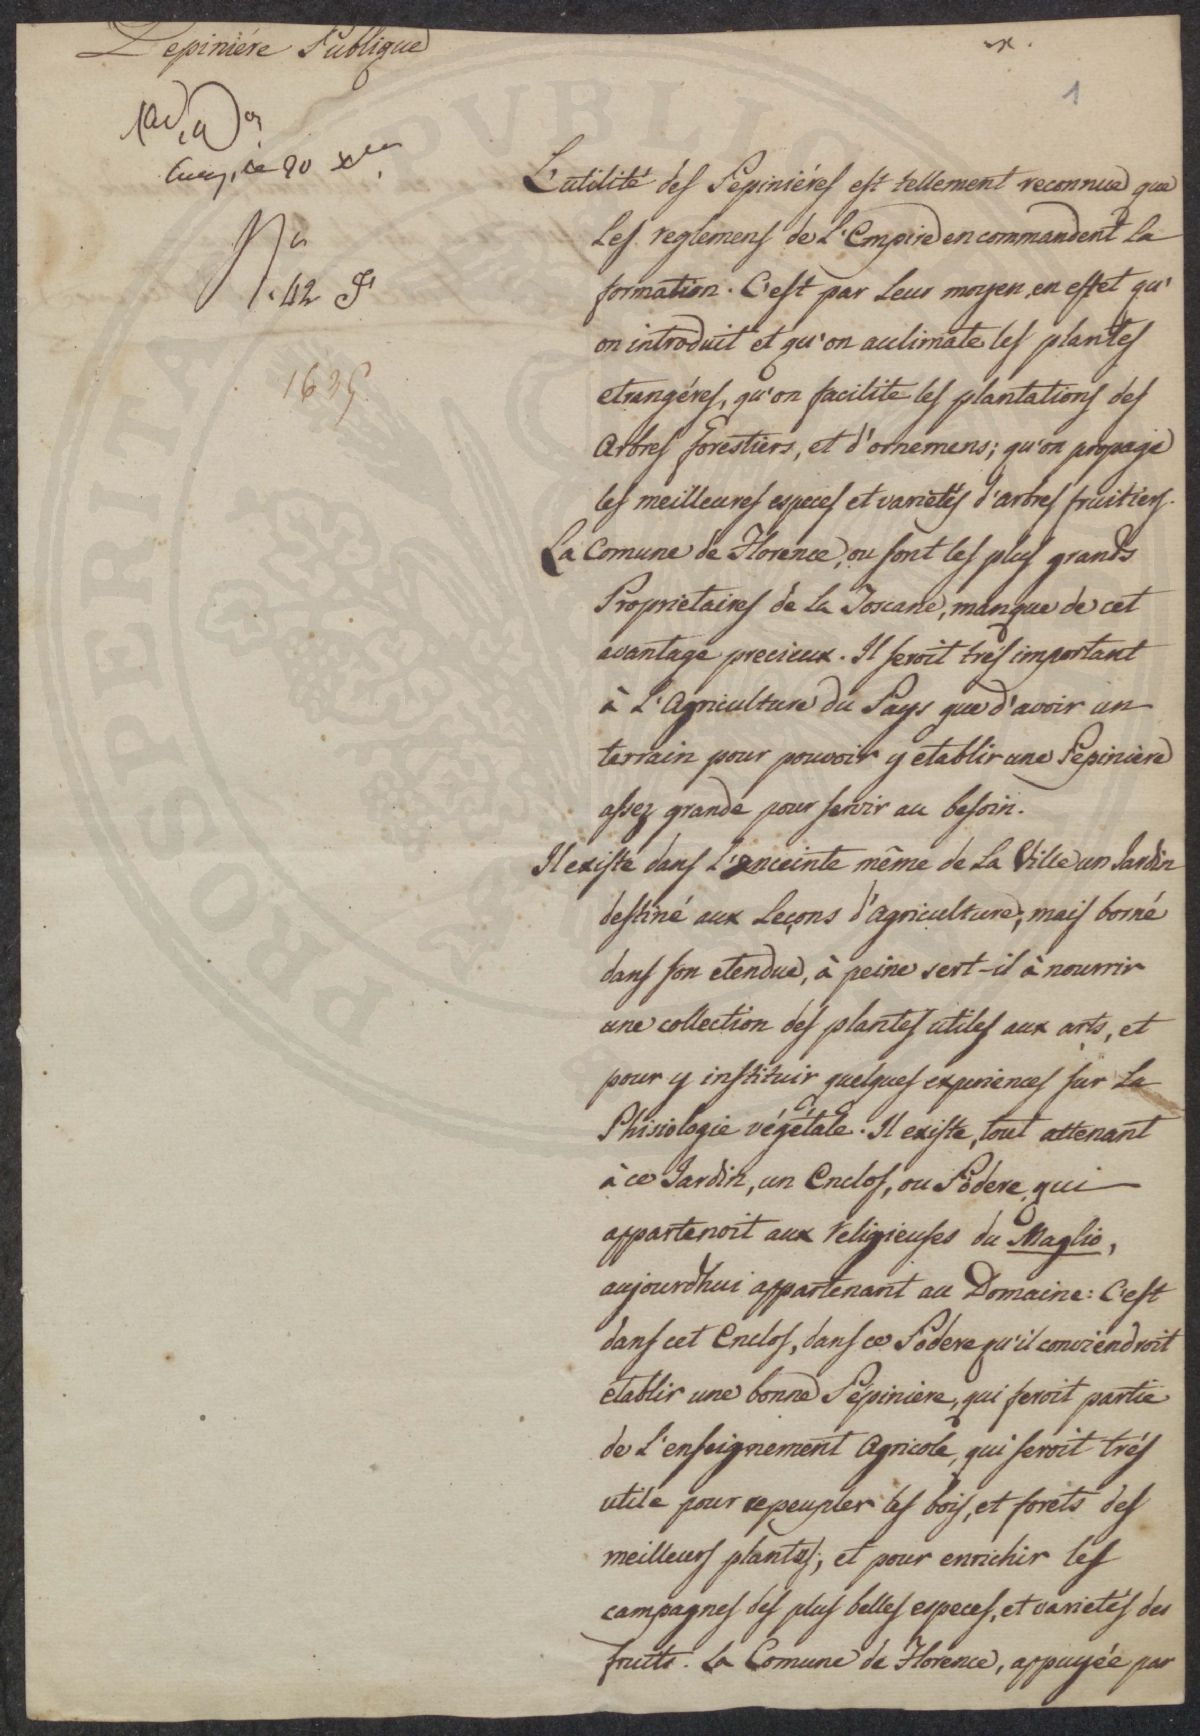 Pepiniére Publique
1
N.
42
1635
L'utilité des Pepiniéres est tellement reconnue que
Les reglemens de L'Empire en commandent La
formation. C'est par Leur moyen en effet qu'
on introduit et qu'on aclimate les plantes
etrangéres, qu'on facilite les plantations des
Arbres forestiers, et d'ornemens; qu'on propage
les meilleures especes et varietés d'arbres fruitiers.
La Comune de Florence, ou sont les plus grands
Proprietaires de La Toscane, manque de cet
avantage precieux. Il seroit trés important
à L'Agriculture du Pays que d'avoir un
terrain pour pouvoir y etablir une Pepiniere
assez grande pour servir au besoin.
Il existe dans L'enceinte même de La Ville un Jardin
destiné aux Leçons d'Agriculture; mais borné
dans son etendue, à peine sert-il à nourrir
une collection des plantes utiles aux arts, et
pour y instituir quelques experiences sur La
Phisiologie végétale. Il existe, tout attenant
à ce Jardin, un Enclos, ou Podere, qui
appartenoit aux Religieuses du Maglio,
aujourd'hui appartenant au Domaine: C'est
dans cet Enclos, dans ce Podere qu'il conviendroit
etablir une bonne Pépiniere, qui feroit partie
de L'enseignement Agricole, qui seroit trés
utile pour repeupler les bois, et forets des
meilleurs plantes; et pour enrichir les
campagnes des plus belles especes, et varietés des
fruits. La Comune de Florence, appuyée par